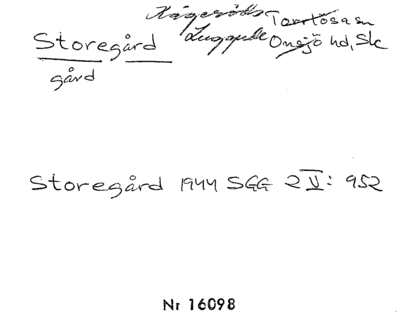 Hägeröds Torrlösa sn
Storegård Luggude Onsjö hd, Sk
gård
Storegård 1944 SGG 2 V: 952
Nr 16098